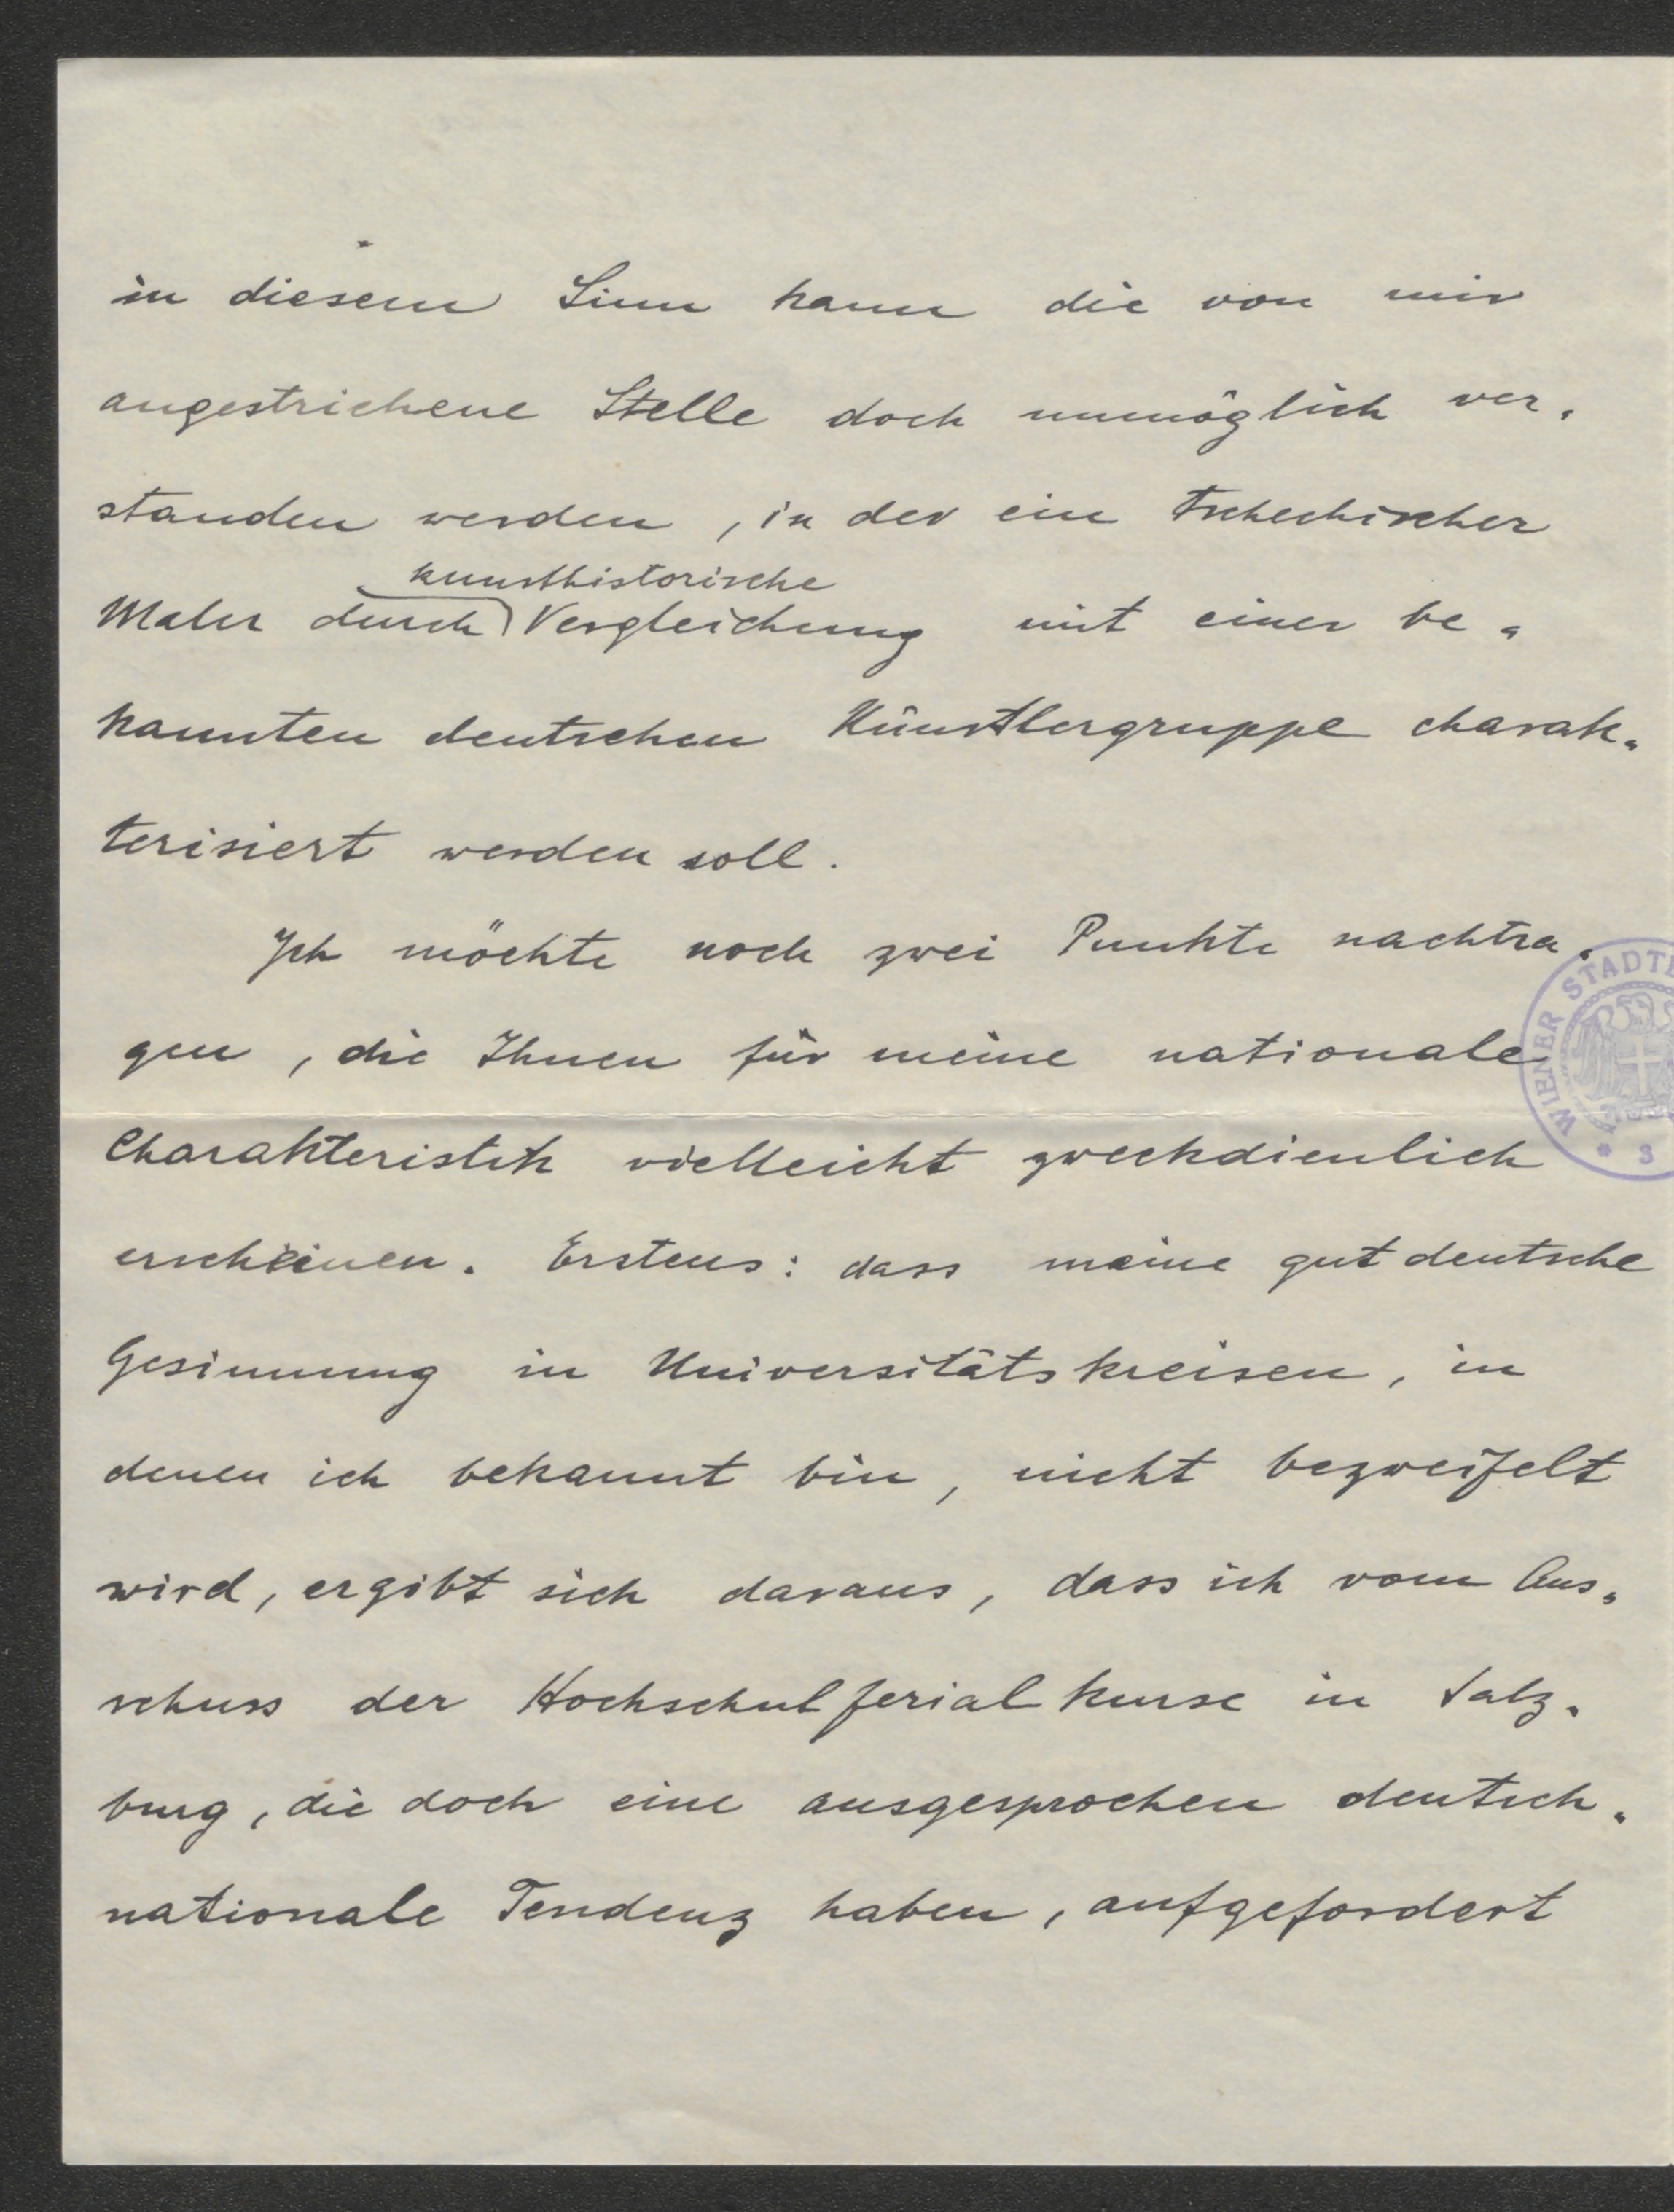 in diesem Sinn kann die von mir
angestrichene Stelle doch unmöglich ver-
standen werden, in der ein tschechischer
kunsthistorische
Maler durch Vergleichung mit einer be-
kannten deutschen Künstlergruppe charak-
terisiert werden soll.
Ich möchte noch zwei Punkte nachtra-
gen, die Ihnen für meine nationale
Charakteristik vielleicht zweckdienlich
erscheinen. Erstens: dass meine gut deutsche
Gesinnung in Universitätskreisen, in
denen ich bekannt bin, nicht bezweifelt
wird, ergibt sich daraus, dass ich vom Aus-
schuss der Hochschulferialkurse in Salz-
burg, die doch eine ausgesprochen deutsch-
nationale Tendenz haben, aufgefordert
WIENER STADT
* 3